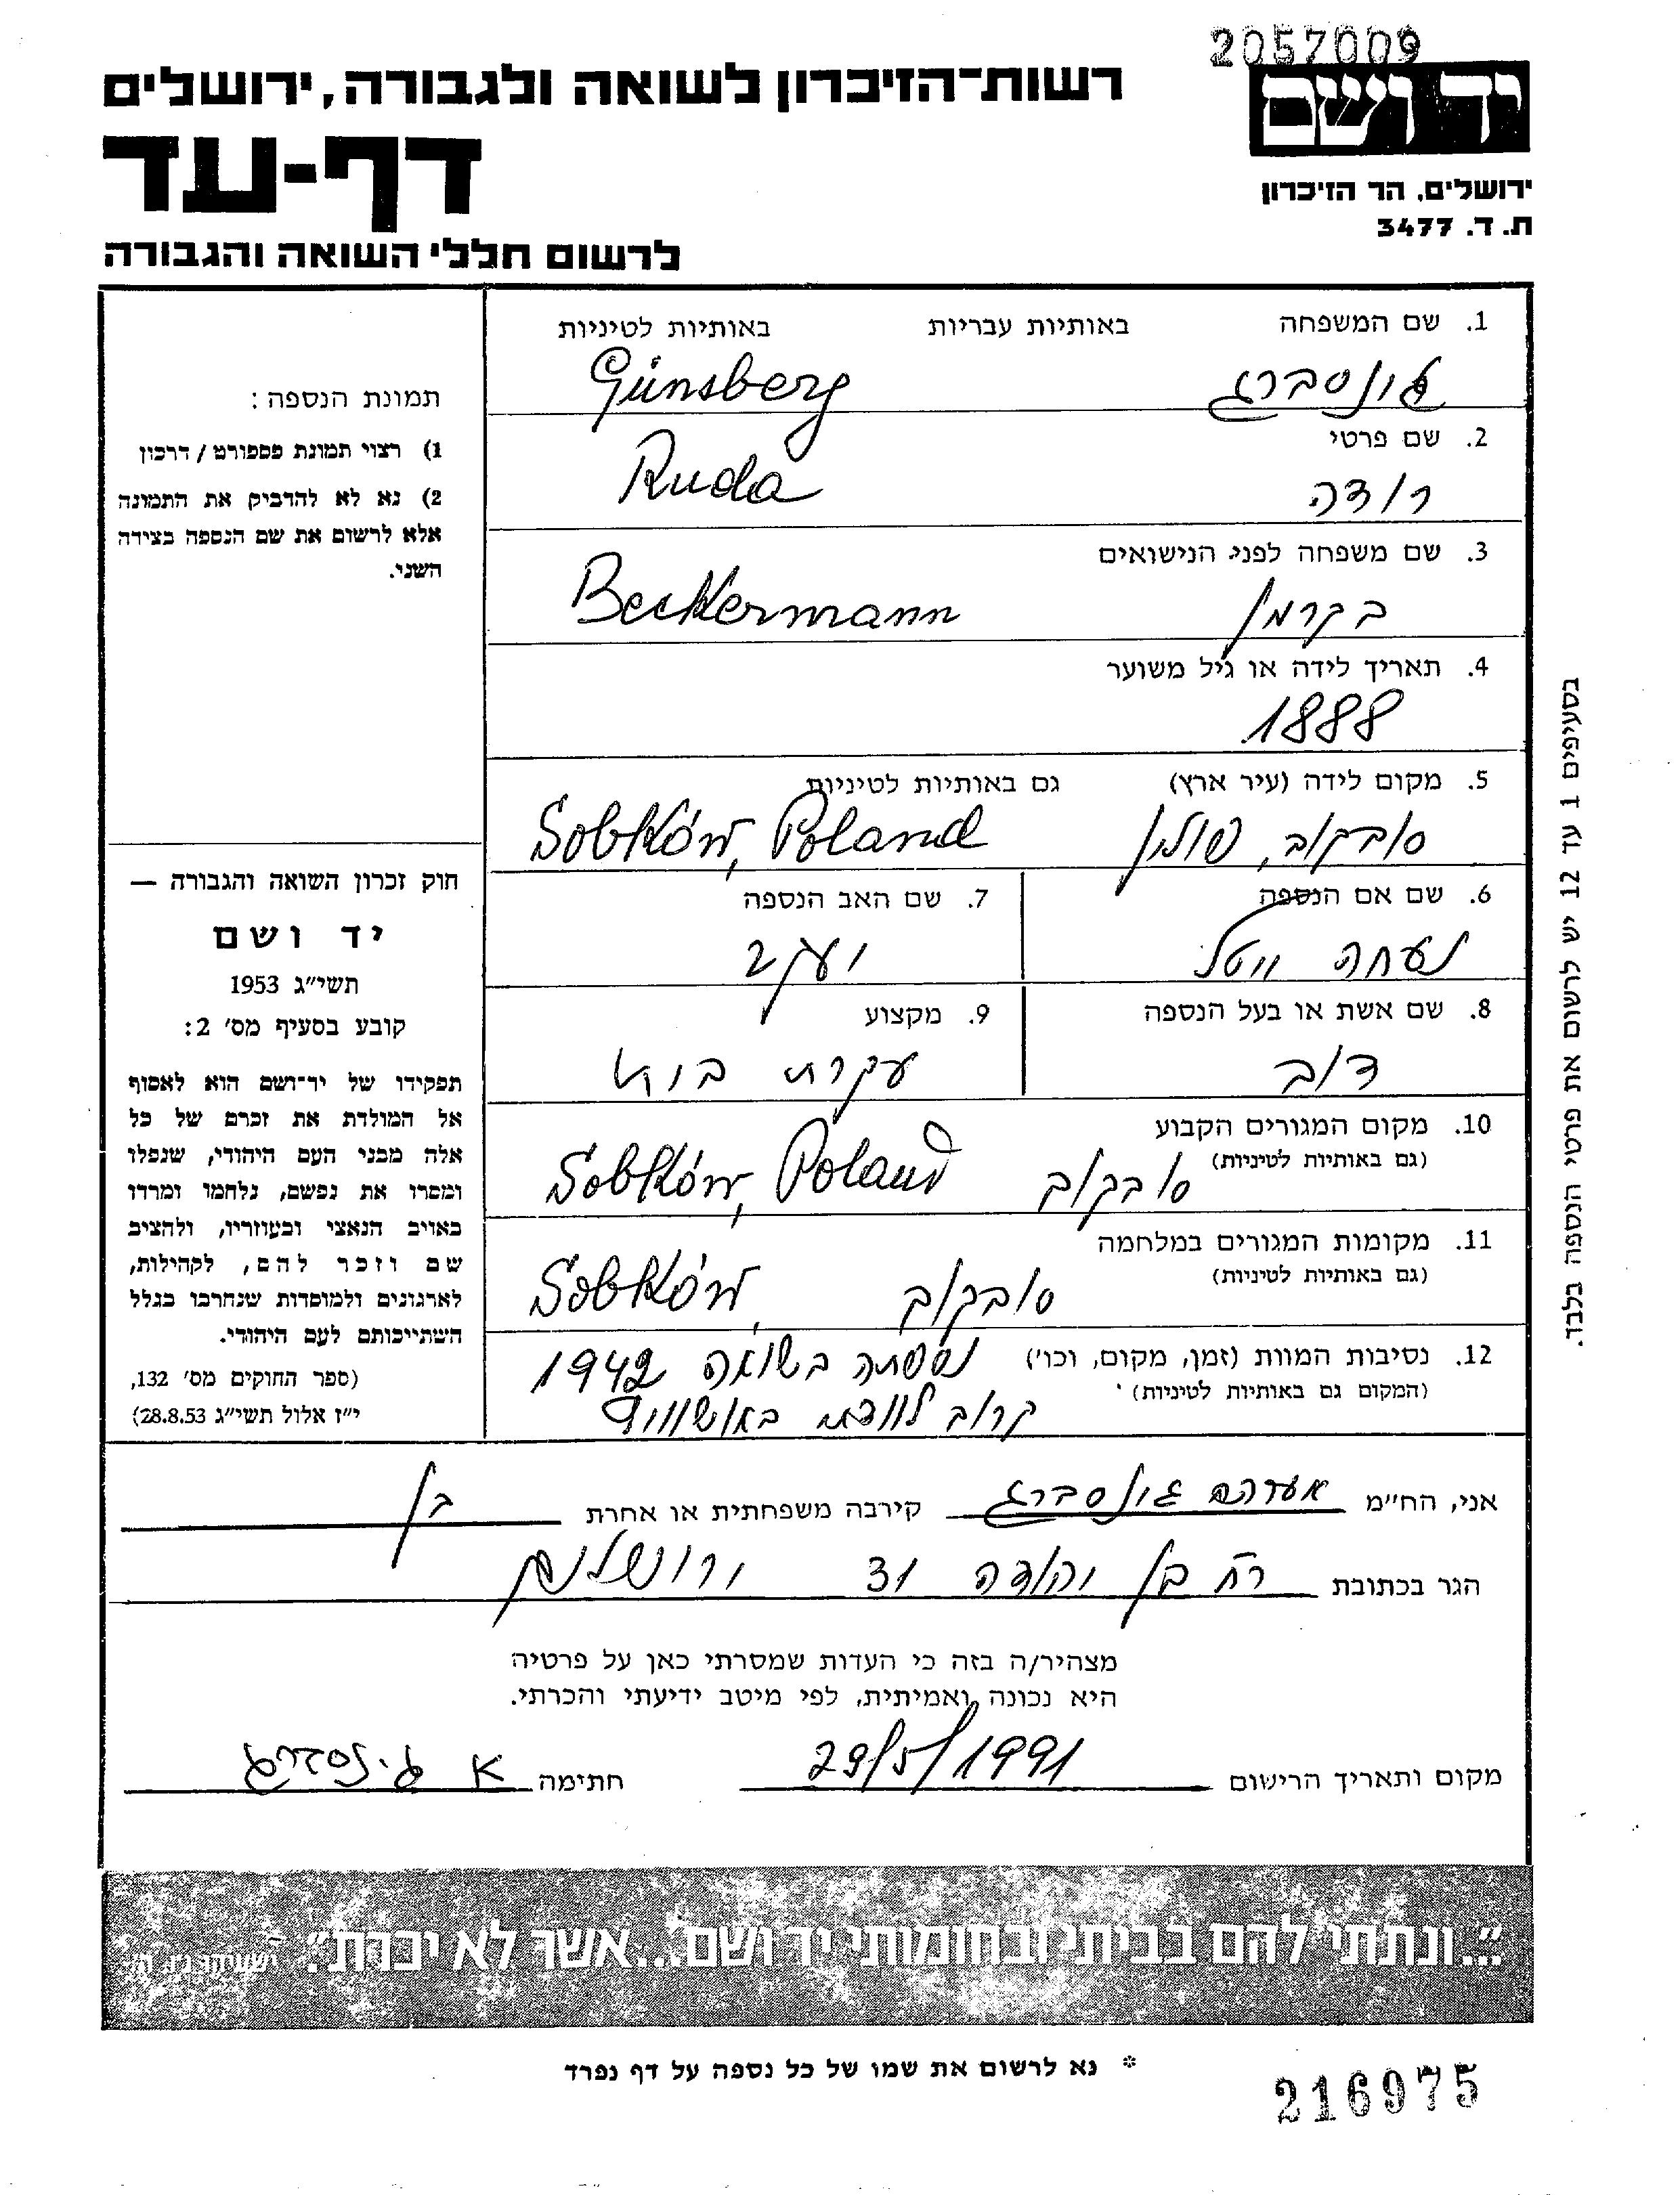 2057009
יד ושם
רשות־הזיכרון לשואה ולגבורה, ירושלים
דף-עד
ירושלים, הר הזיכרון
ת. ד. 3477
לרשום חללי השואה והגבורה
1. שם המשפחה באותיות עבריות באותיות לטיניות
גונסברג Günsberg
2. שם פרטי
רודה Ruda
3. שם משפחה לפני הנישואים
בקרמן Beckermann
4. תאריך לידה או גיל משוער
1888
5. מקום לידה (עיר ארץ) גם באותיות לטיניות
סובקוב, פולין Sobków, Poland
6. שם אם הנספה 7. שם האב הנספה
נעחה ויטל יעקב
8. שם אשת או בעל הנספה 9. מקצוע
דוב עקרת בית
10. מקום המגורים הקבוע
(גם באותיות לטיניות)
סובקוב Sobków, Poland
11. מקומות המגורים במלחמה
(גם באותיות לטיניות)
סובקוב Sobków,
12. נסיבות המוות (זמן, מקום, וכו') נספתה בשואה 1942
(המקום גם באותיות לטיניות)
קרוב לוודאי באושוויץ
תמונת הנספה:
1) רצוי תמונת פספורט / דרכון
2) נא לא להדביק את התמונה
אלא לרשום את שם הנספה בצידה
השני.
חוק זכרון השואה והגבורה —
יד ושם
תשי"ג 1953
קובע בסעיף מס' 2:
תפקידו של יד־ושם הוא לאסוף
אל המולדת את זכרם של כל
אלה מבני העם היהודי, שנפלו
ומסרו את נפשם, נלחמו ומרדו
באויב הנאצי ובעוזריו, ולהציב
שם וזכר להם, לקהילות,
לארגונים ולמוסדות שנחרבו בגלל
השתייכותם לעם היהודי.
(ספר החוקים מס' 132,
י"ז אלול תשי"ג 28.8.53)
בסעיפים 1 עד 12 יש לרשום את פרטי הנספה בלבד.
אני, הח"מ אברהם גונסברג קירבה משפחתית או אחרת בן
הגר בכתובת רח בן יהודה 31 ירושלים
מצהיר/ה בזה כי העדות שמסרתי כאן על פרטיה
היא נכונה ואמיתית, לפי מיטב ידיעתי והכרתי.
מקום ותאריך הרישום 29/5/1991 חתימה א גינסברג
"...ונתתי להם בביתי ובחומותי יד ושם...אשר לא יכרת". ישעיהו נ"ו, ה'
* נא לרשום את שמו של כל נספה על דף נפרד
216975